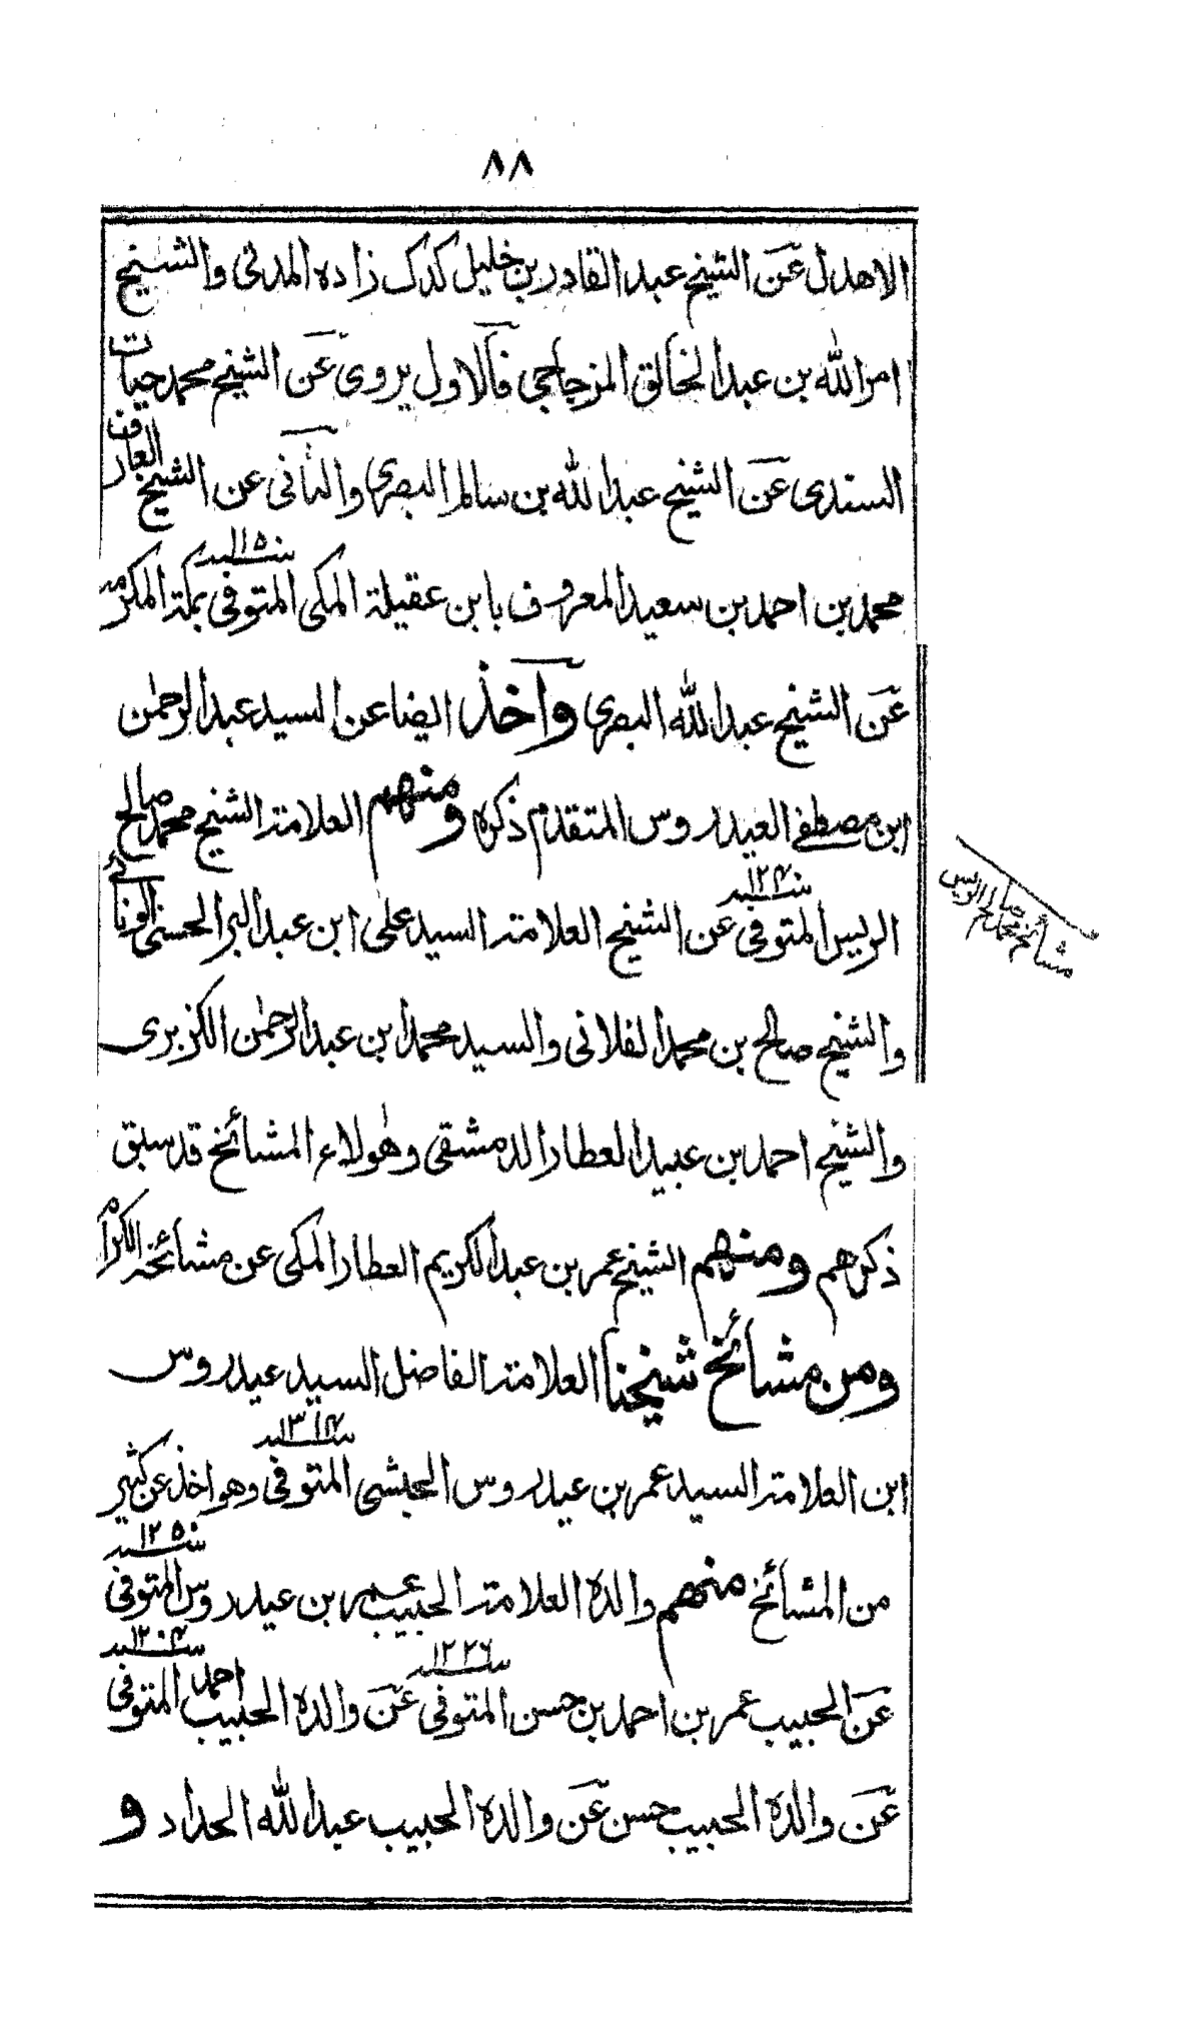 ٨٨
الاهدل عن الشيخ عبد القادر بن خليل كدك زاده المدنى والشيخ
امر الله بن عبد الخالق المزجاجى فالاول يروى عن الشيخ محمد حيات
السندى عن الشيخ عبد الله بن سالم البصرى والثانى عن الشيخ العارف
محمد بن احمد بن سعيد المعروف بابن عقيلة المكى المتوفى بمكة المكرمة
عن الشيخ عبد الله البصرى واخذ ايضا عن السيد عبد الرحمٰن
ابن مصطفے العيدروس المتقدم ذكره ومنهم العلامة الشيخ محمد صالح
الريس المتوفى سنة ١٢٤٠ عن الشيخ العلامة السيد على ابن عبد البر الحسنى الونائے
والشيخ صالح بن محمد الفلانى والسيد محمد ابن عبد الرحمٰن الكزبرى
والشيخ احمد بن عبيد العطار الدمشقى وهٰولاء المشائخ قد سبق
ذكرهم ومنهم الشيخ عمر بن عبد الكريم العطار المكى عن مشائخه الكرام
ومن مشائخ شيخنا العلامة الفاضل السيد عيدروس
ابن العلامة السيد عمر بن عيدروس الحبشى المتوفى سنة ١٣١٤ وهو اخذ عن كثير
من المشائخ منهم والده العلامة الحبيب عمر بن عيدروس المتوفى سنة ١٢٥٠
عن الحبيب عمر بن احمد بن حسن المتوفى سنة ١٢٢٦ عن والده الحبيب احمد المتوفى سنة ١٢٠٤
عن والده الحبيب حسن عن والده الحبيب عبد الله الحداد و
مشائخ محمد صالح الريس